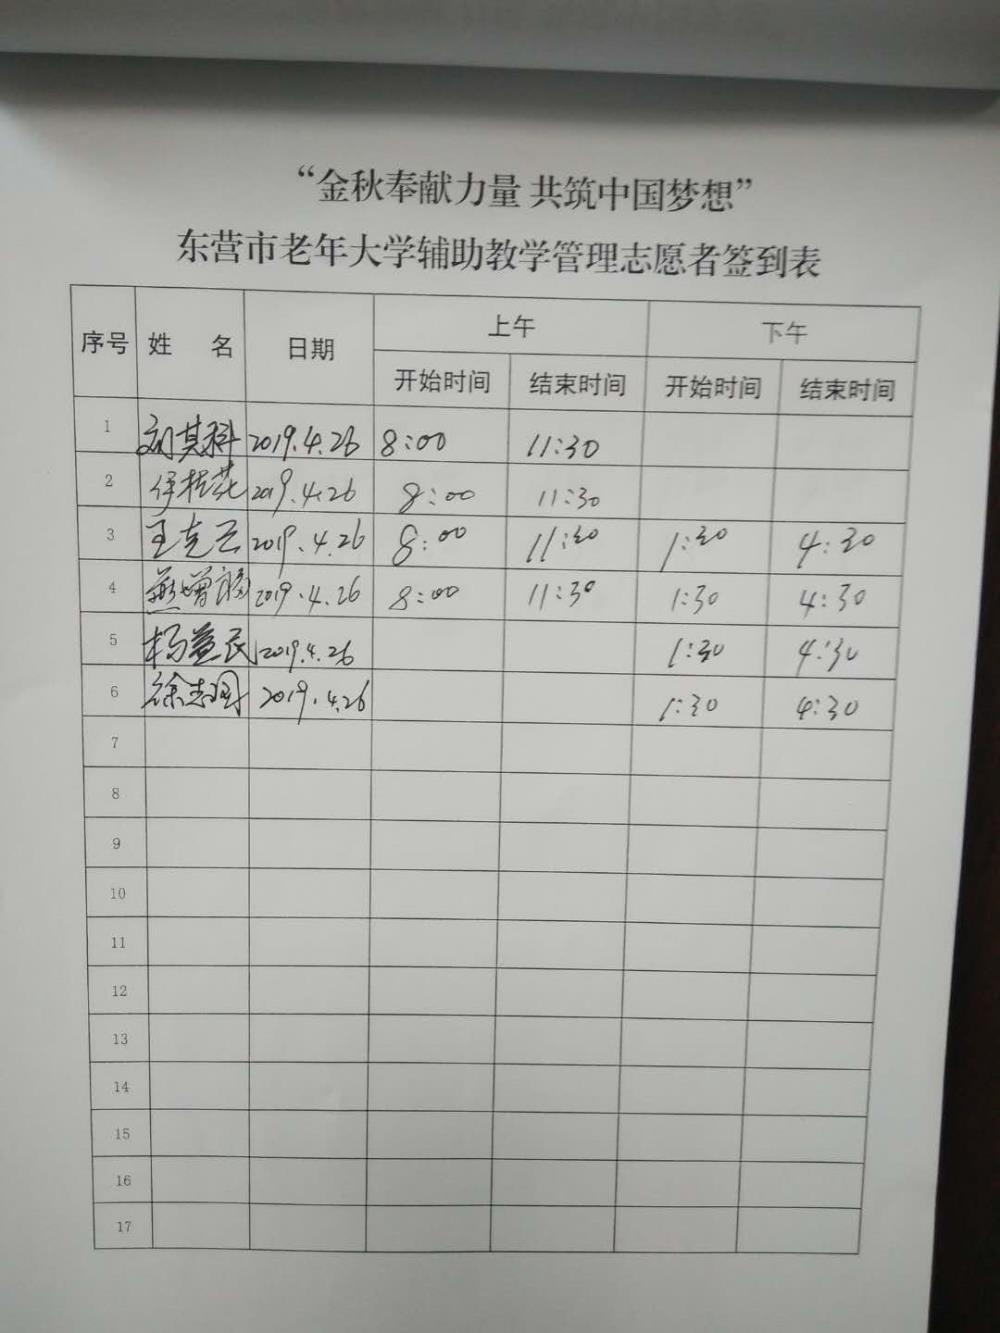 “金秋奉献力量 共筑中国梦想”
东营市老年大学辅助教学管理志愿者签到表
序号 姓 名 日期 上午 下午
开始时间 结束时间 开始时间 结束时间
1 刘其科 2019.4.26 8:00 11:30
2 伊桂花 2019.4.26 8:00 11:30
3 王克云 2019.4.26 8:00 11:30 1:30 4:30
4 燕增 2019.4.26 8:00 11:30 1:30 4:30
5 杨益民 2019.4.26 1:30 4:30
6 徐志 2019.4.26 1:30 4:30
7
8
9
10
11
12
13
14
15
16
17